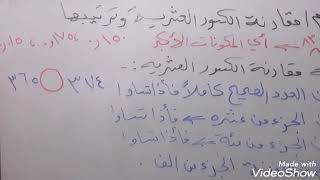 مقارنة الكسور العشرية وترتيبها
أي المكونات الأكبر
مقارنة الكسور العشرية :-
العدد الصحيح كاملاً فإذا تساوا
٣٧٤ ٣٦٥
الجزء من عشرة فإذا تساوا
الجزء من مئة فإذا تساوا
الجزء من الف .
Made with
VideoShow